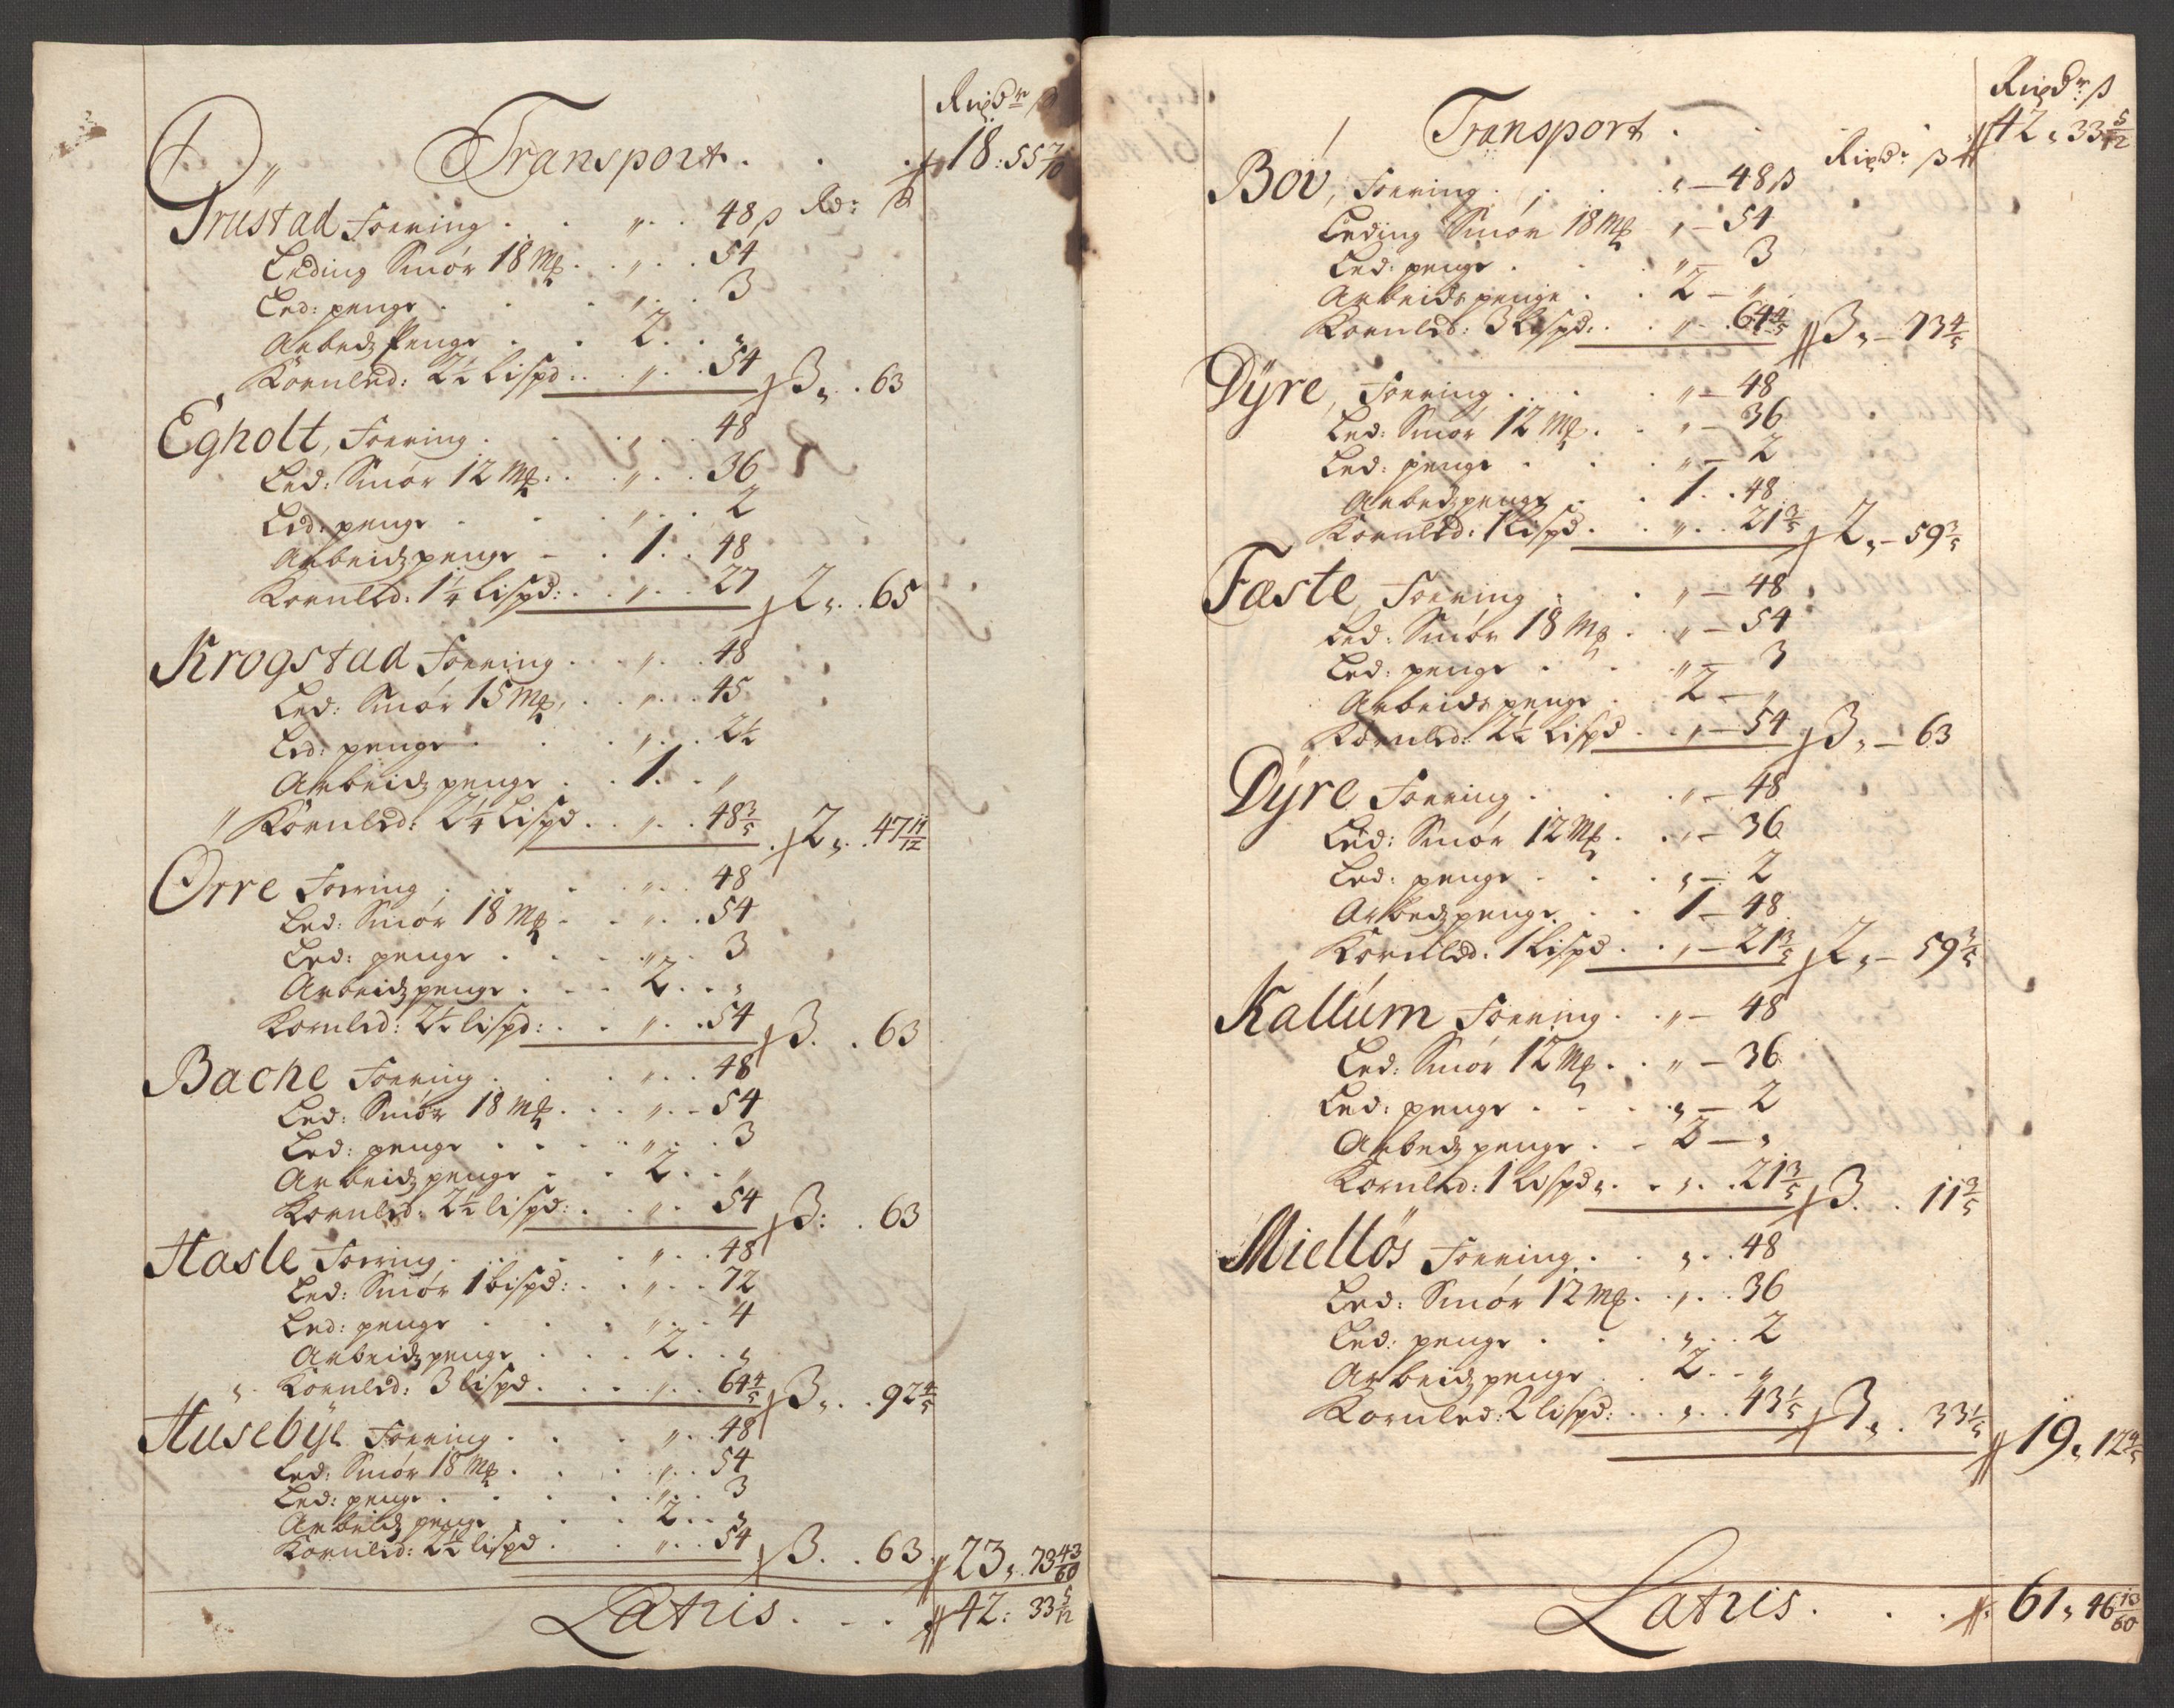 Rixdr ß
Transport . . . 18:55 7/10
Rd: ß
Trustad Foering . . „ . . 48 ß
Leding Smør 18 Mk . . „ . . 54
Led: penge . . . „ . . 3
Arbeds Penge . . 2 . . „
Kornled: 2½ Lispd: . . „ . . 54 3„ . 63
Egholt, Foering . . . „ . . 48
Led: Smør 12 Mk: . . „ . . 36
Led: penge . . . „ . . 2
Arbeidspenge - . 1 . . 48
Kornled: 1¼ Lispd: . . „ . . 27 2„ . . 65
Krogstad Foering . . . „ . . 48
Led: Smør 15 Mk, . . „ . . 45
Led: penge . . . „ . . 2½
Arbeids penge . . 1 . . „
„ Kornled: 2¼ Lispd . . „ . . 48 3/5 2„ . 47 11/12
Ørre Foering . . . „ . . 48
Led: Smør 18 Mk . . „ . . 54
Led: penge . . . „ . . 3
Arbeidspenge . . . 2 . . „
Kornled: 2½ lispd: . . „ . . 54 3 . . 63
Bache Foering . . . „ . . 48
Led: Smør 18 Mk . . . „ . - 54
Led: penge . . . „ . . 3
Arbeids penge . . . 2 . . „
Kornled: 2½ lispd: . . „ . 54 3: . 63
Hasle Foering . . . „ . . 48
Led: Smør 1 bispd: . . „ . . 72
Led: penge . . . „ . . 4
Arbeidspenge . . . 2 . . „
„ Kornled: 3 lispd . . . „ . . 64 4/5 3„ . . 92 4/5
Husebye Foering . . . „ . . 48
Led: Smør 18 Mk . . . „ . . 54
Led: penge . . . „ . . 3
Arbeids penge . . . 2 . . „
Kornled: 2½ lispd . . „ . . 54 3 . . 63 23„ 73 43/60
Latris . - . 42: 33 5/12
Rixdr ß
Transport . . 42„ 33 5/12
Rixdr ß
Bov, Foering . . . „ - 48 ß
Leding Smør 18 Mk „ - 54
Led: penge . . . „ - 3
Arbeids penge . . 2 - „
Kornled: 3 Lispd: . . „ - . 64 4/5 3„ - 73 4/5
Dÿre, Foering . . . „ - 48
Led: Smør 12 Mk . . „ - 36
Led: penge . . . „ - 2
Arbedspenge . . 1 . . 48
Kornled: 1 Lispd . . „ . . 21 3/5 2„ - 59 3/5
Fæste, Foering . . „ - 48
Led: Smør 18 Mk . . „ - 54
Led: penge . . . „ - 3
Arbeids penge . 2 - „
Kornled: 2½ Lispd . . „ - 54 3„ - 63
Dÿre Foering . . . „ - 48
Led: Smør 12 Mk . . „ - 36
Led: penge . . . „ - 2
Arbedspenge . . 1 - 48
Kornled: 1 Lispd . . „ - 21 3/5 2„ - 59 3/5
Kallum Foering . . „ - 48
Led: Smør 12 Mk . . „ - 36
Led: penge . - . „ - 2
Arbeds penge . - 2 - „
Kornled: 1 Lispd„ . . „ . . 21 3/5 3 . . 11 3/5
Miellös Foering . . „ . . 48
Led: Smør 12 Mk . „ . . 36
Led: penge . . . „ . . 2
Arbeids penge . . 2 . - „
Kornled: 2 lispd: . . . „ . . 43 1/5 3„ . 33 1/5 19„ 12 4/5
Latris . . . 61„ 46 13/60